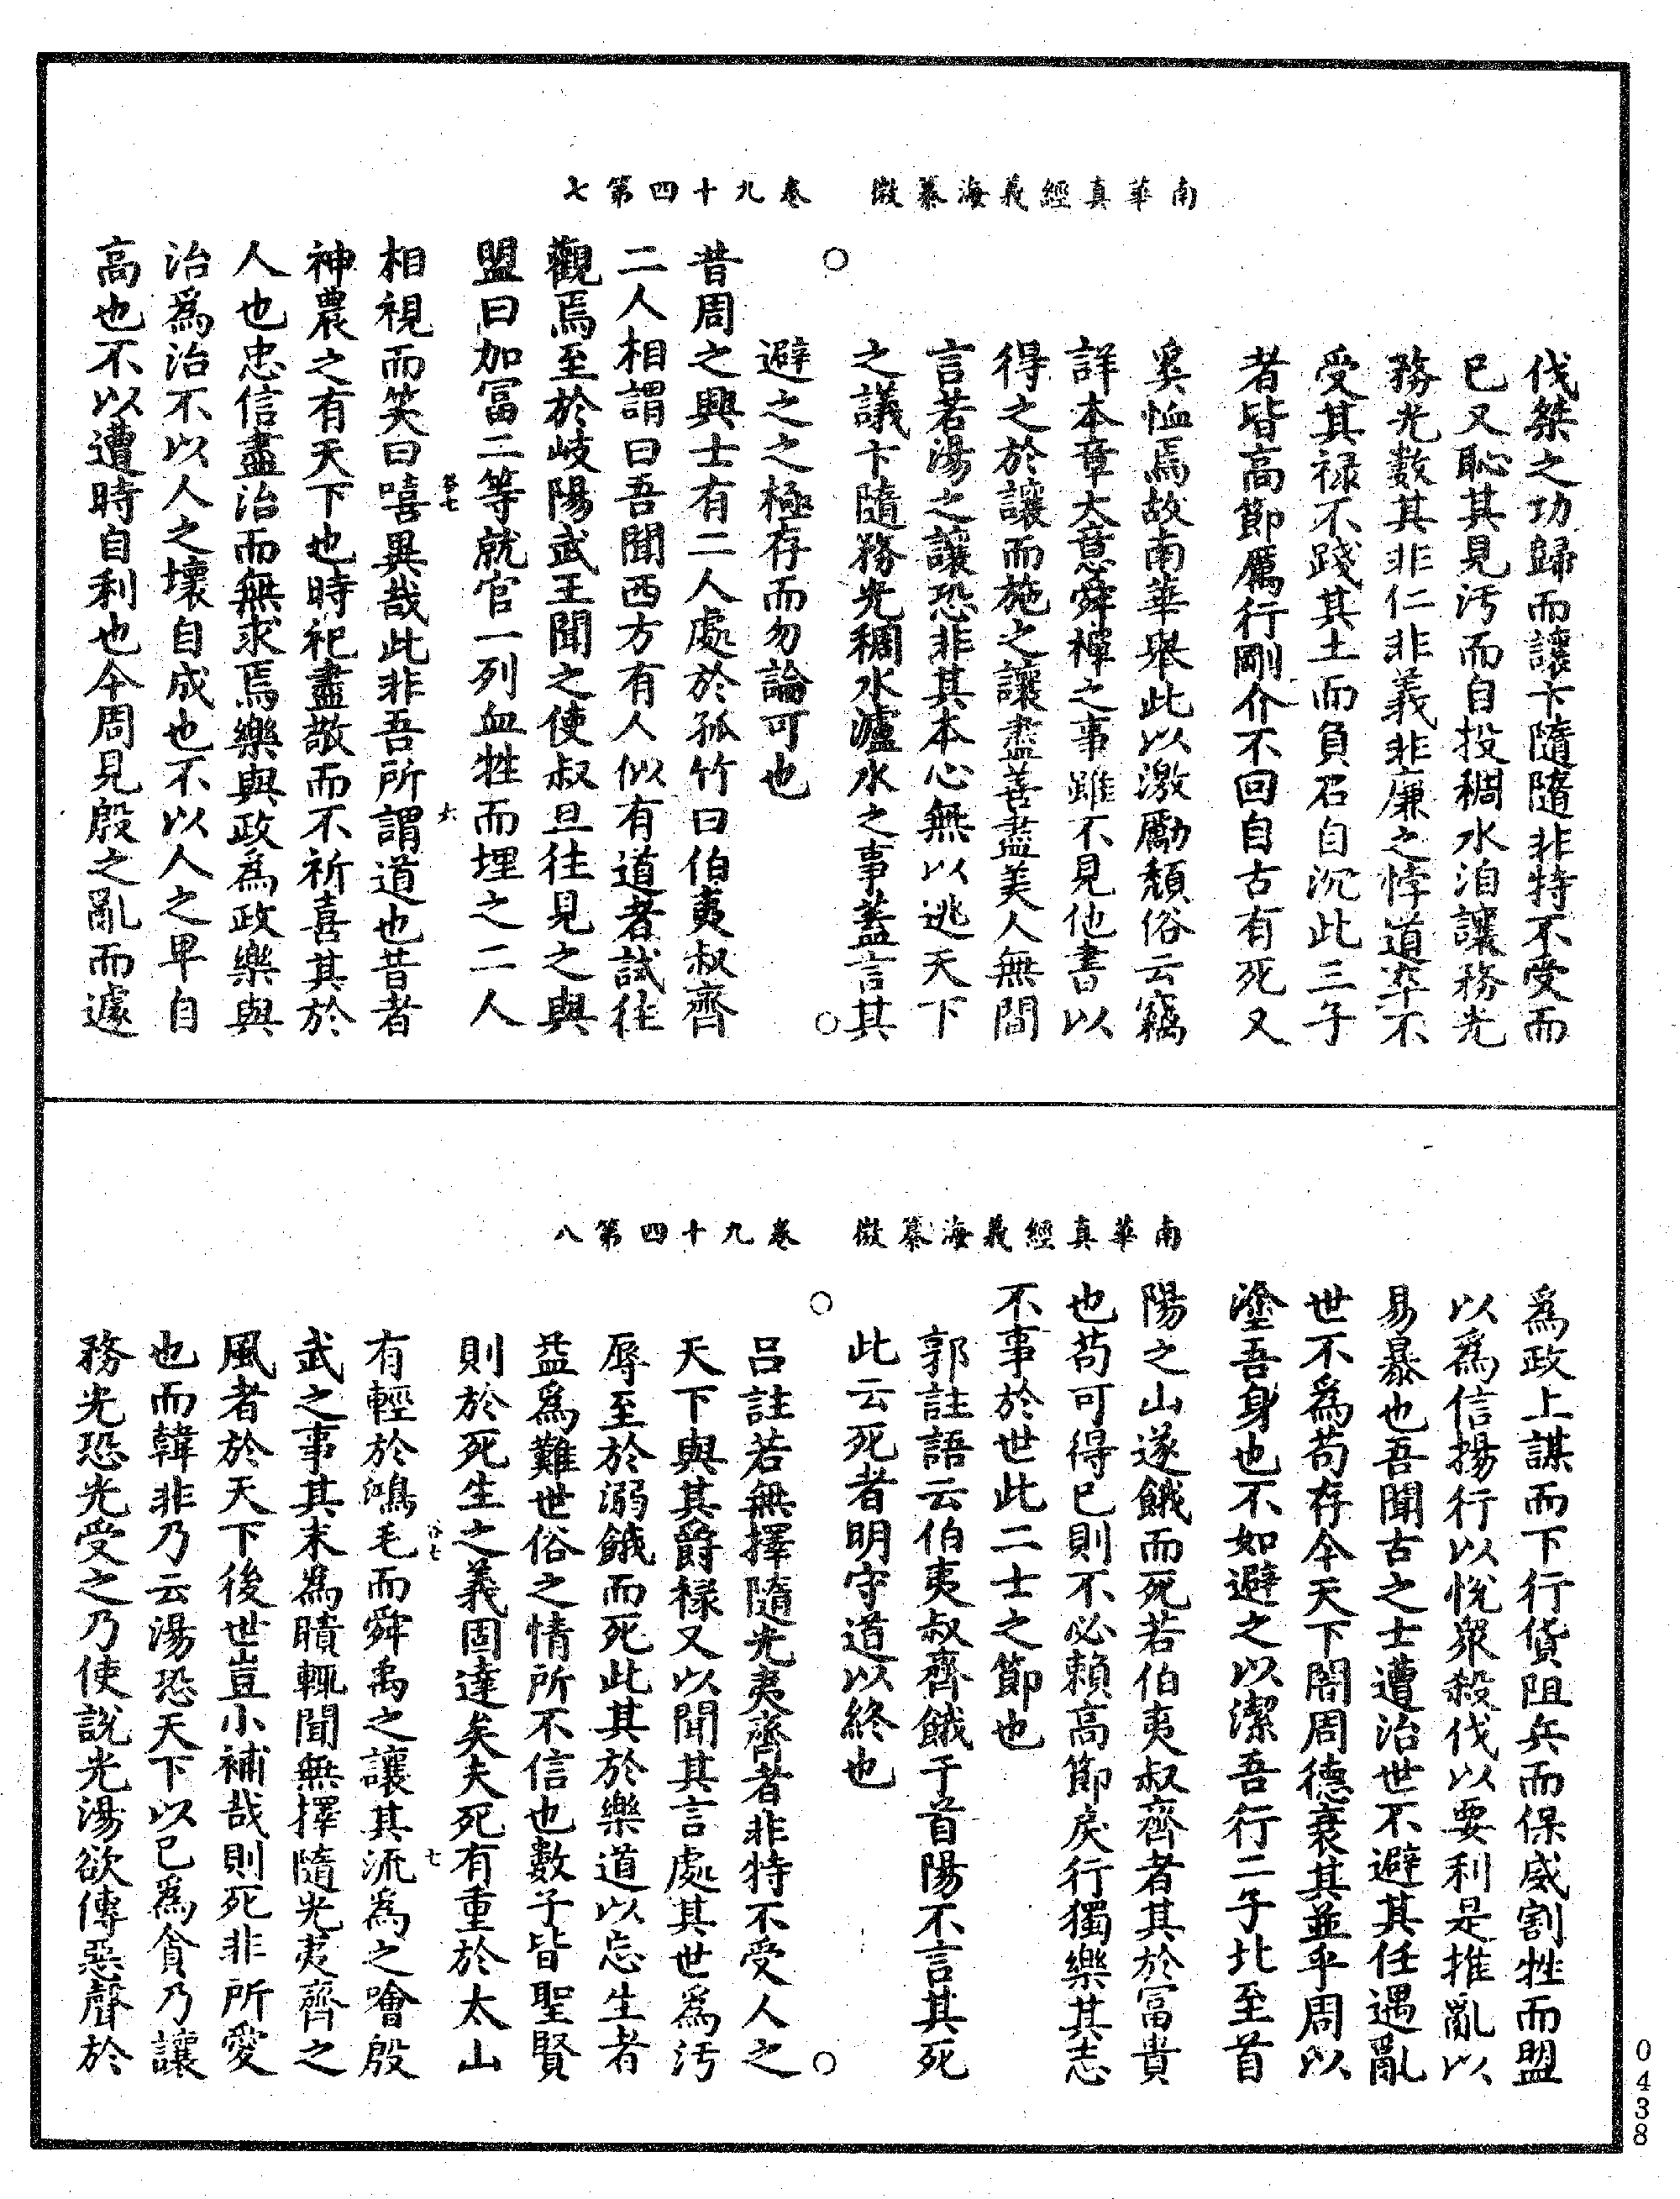 南華真經義海纂微　卷九十四第七
伐桀之功歸而讓卞隨隨非特不受而
已又恥其見污而自投稠水洎讓務光
務光數其非仁非義非廉之悖道率不
受其禄不踐其土而負石自沉此三子
者皆高節厲行剛介不回自古有死又
奚恤焉故南華舉此以激勵頹俗云竊
詳本章大意舜禪之事雖不見他書以
得之於讓而施之讓盡善盡美人無間
言若湯之讓恐非其本心無以逃天下
之議卞隨務光稠水瀘水之事蓋言其
避之之極存而勿論可也
昔周之興士有二人處於孤竹曰伯夷叔齊
二人相謂曰吾聞西方有人似有道者試往
觀焉至於岐陽武王聞之使叔旦往見之與
盟曰加富二等就官一列血牲而埋之二人
相視而笑曰嘻異哉此非吾所謂道也昔者
神農之有天下也時祀盡敬而不祈喜其於
人也忠信盡治而無求焉樂與政為政樂與
治爲治不以人之壞自成也不以人之卑自
高也不以遭時自利也今周見殷之亂而遽
南華真經義海纂微　卷九十四第八
爲政上謀而下行貨阻兵而保威割牲而盟
以爲信揚行以悅衆殺伐以要利是推亂以
易暴也吾聞古之士遭治世不避其任遇亂
世不爲苟存今天下闇周德衰其並乎周以
塗吾身也不如避之以潔吾行二子北至首
陽之山遂餓而死若伯夷叔齊者其於富貴
也苟可得已則不必賴高節戾行獨樂其志
不事於世此二士之節也
郭註語云伯夷叔齊餓于首陽不言其死
此云死者明守道以終也
吕註若無擇隨光夷齊者非特不受人之
天下與其爵禄又以聞其言處其世爲污
辱至於溺餓而死此其於樂道以忘生者
益爲難世俗之情所不信也數子皆聖賢
則於死生之義固達矣夫死有重於太山
有輕於鴻毛而舜禹之讓其流為之噲殷
武之事其末為聵輒聞無擇隨光夷齊之
風者於天下後世豈小補哉則死非所愛
也而韓非乃云湯恐天下以已爲貪乃讓
務光恐光受之乃使說光湯欲傳惡聲於
0438